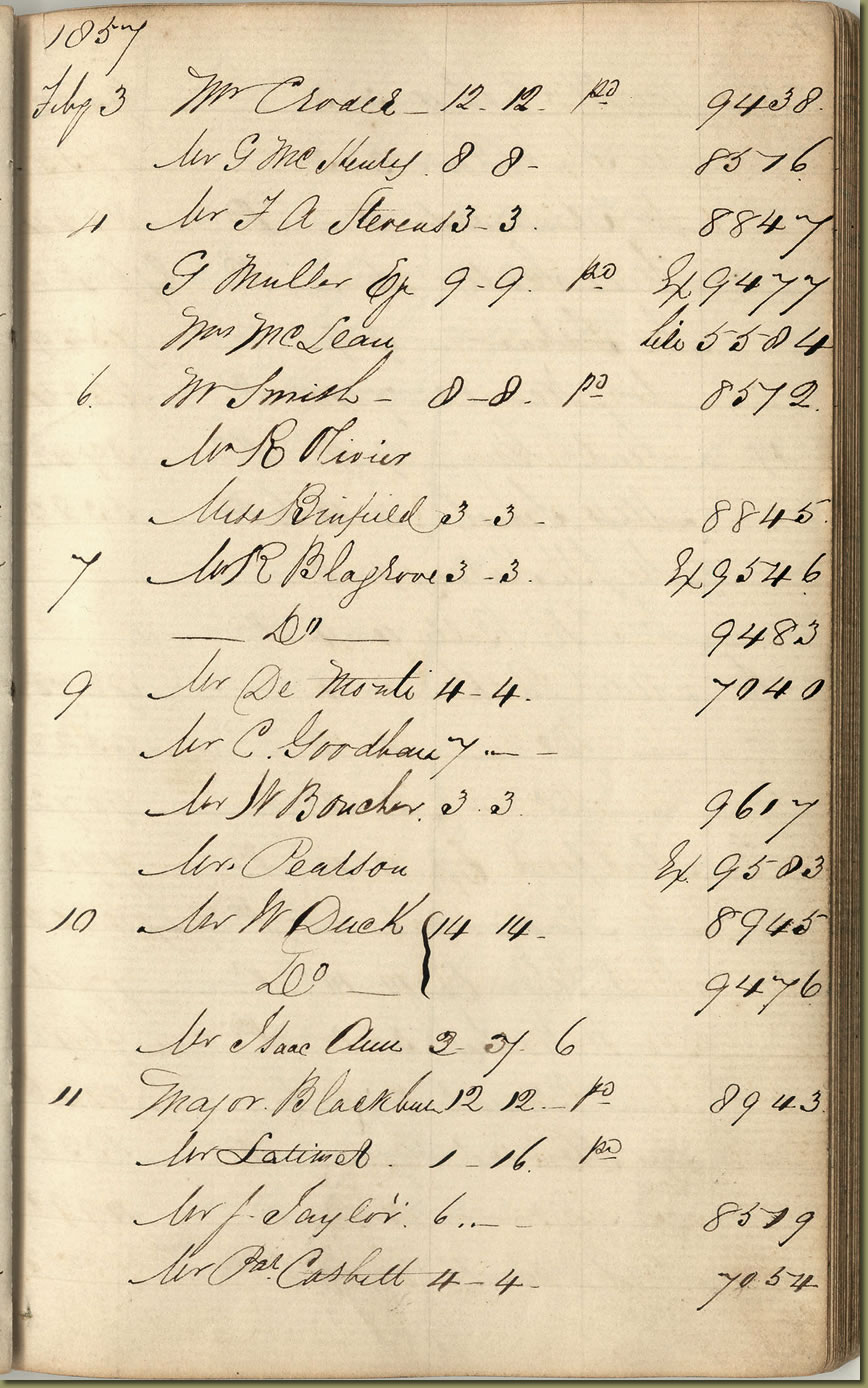 1857
Feby 3 Mr Croder - 12 - 12 - pd 9438
Mr G McHenry 8 8 - 8516
4 Mr F A Stevens 3 - 3 . 8847
G Muller Esq 9 - 9 . pd Ex 9477
Mrs McLean 5584
6. Mr Smith - 8 - 8 . pd 8512
Mr R Olivier
Miss Binfield 3 - 3 - 8845
7 Mr R Blagrove 3 - 3 . Ex 9546
— Do — 9483
9 Mr De Monti 4 - 4 . 7040
Mr C. Goodban 7 .. — -
Mr W Boucher. 3 . 3 9617
Mr. Pearson Ex 9583
10 Mr W Duck { 14 14 - 8945
Do — 9476
Mr Isaac 6
11 Major Blackburn 12 12 - pd 8943
Mr Latimer . 1 - 16 . pd
Mr J. Taylor. 6 .. — - 8519
Mr Pat. Corbett 4 - 4 - 7054